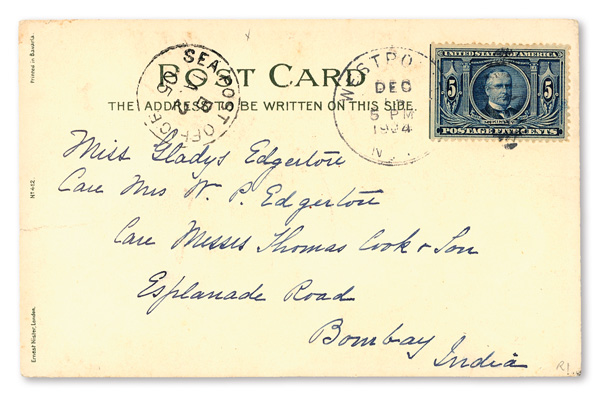 Printed in Bavaria.
Nº 412
Ernest Nister, London.
POST CARD
THE ADDRESS TO BE WRITTEN ON THIS SIDE.
SEA POST OFFICE
WESTPO
DEC
5 PM
1904
N
UNITED STATES OF AMERICA
5 5
POSTAGE FIVE CENTS
Miss Gladys Edgerton
Care Mrs W. P. Edgerton
Care Messrs Thomas Cook & Son
Esplanade Road
Bombay
India
R1